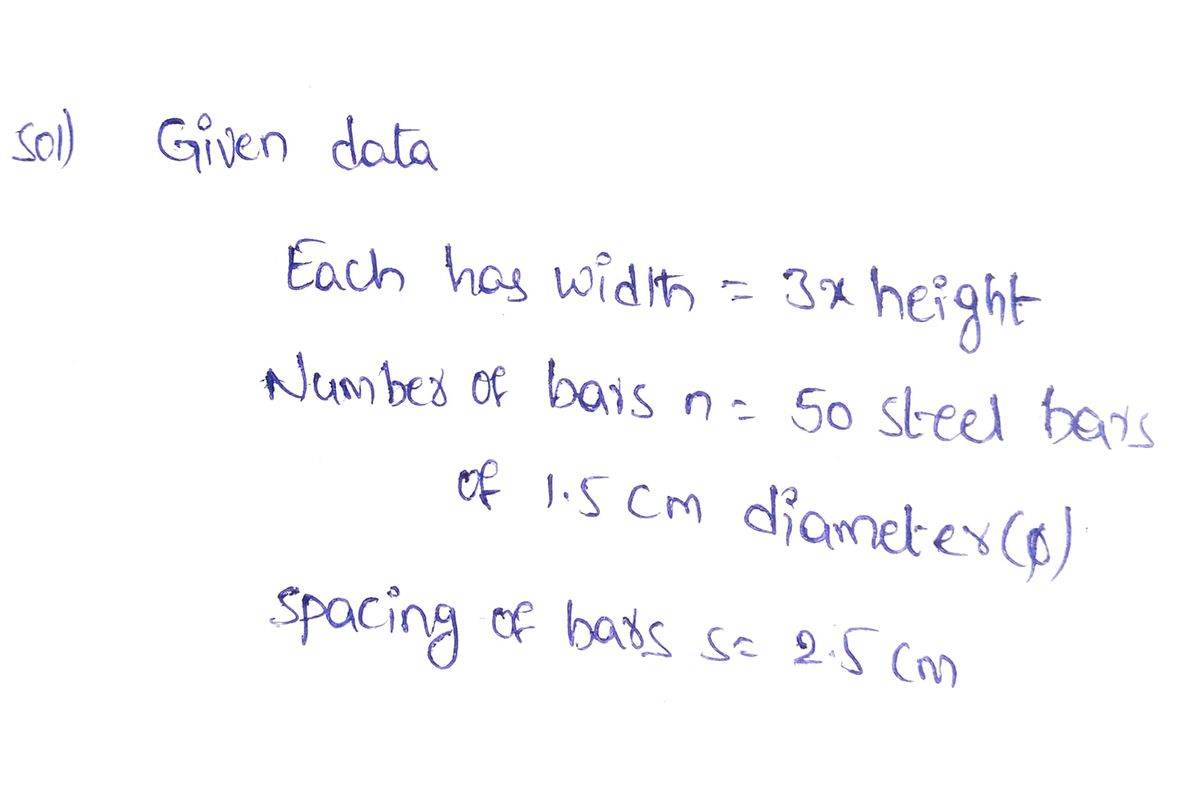 Sol) Given data
Each has width = 3x height
Number of bars n = 50 steel bars
of 1.5 cm diameter (φ)
Spacing of bars s = 2.5 cm